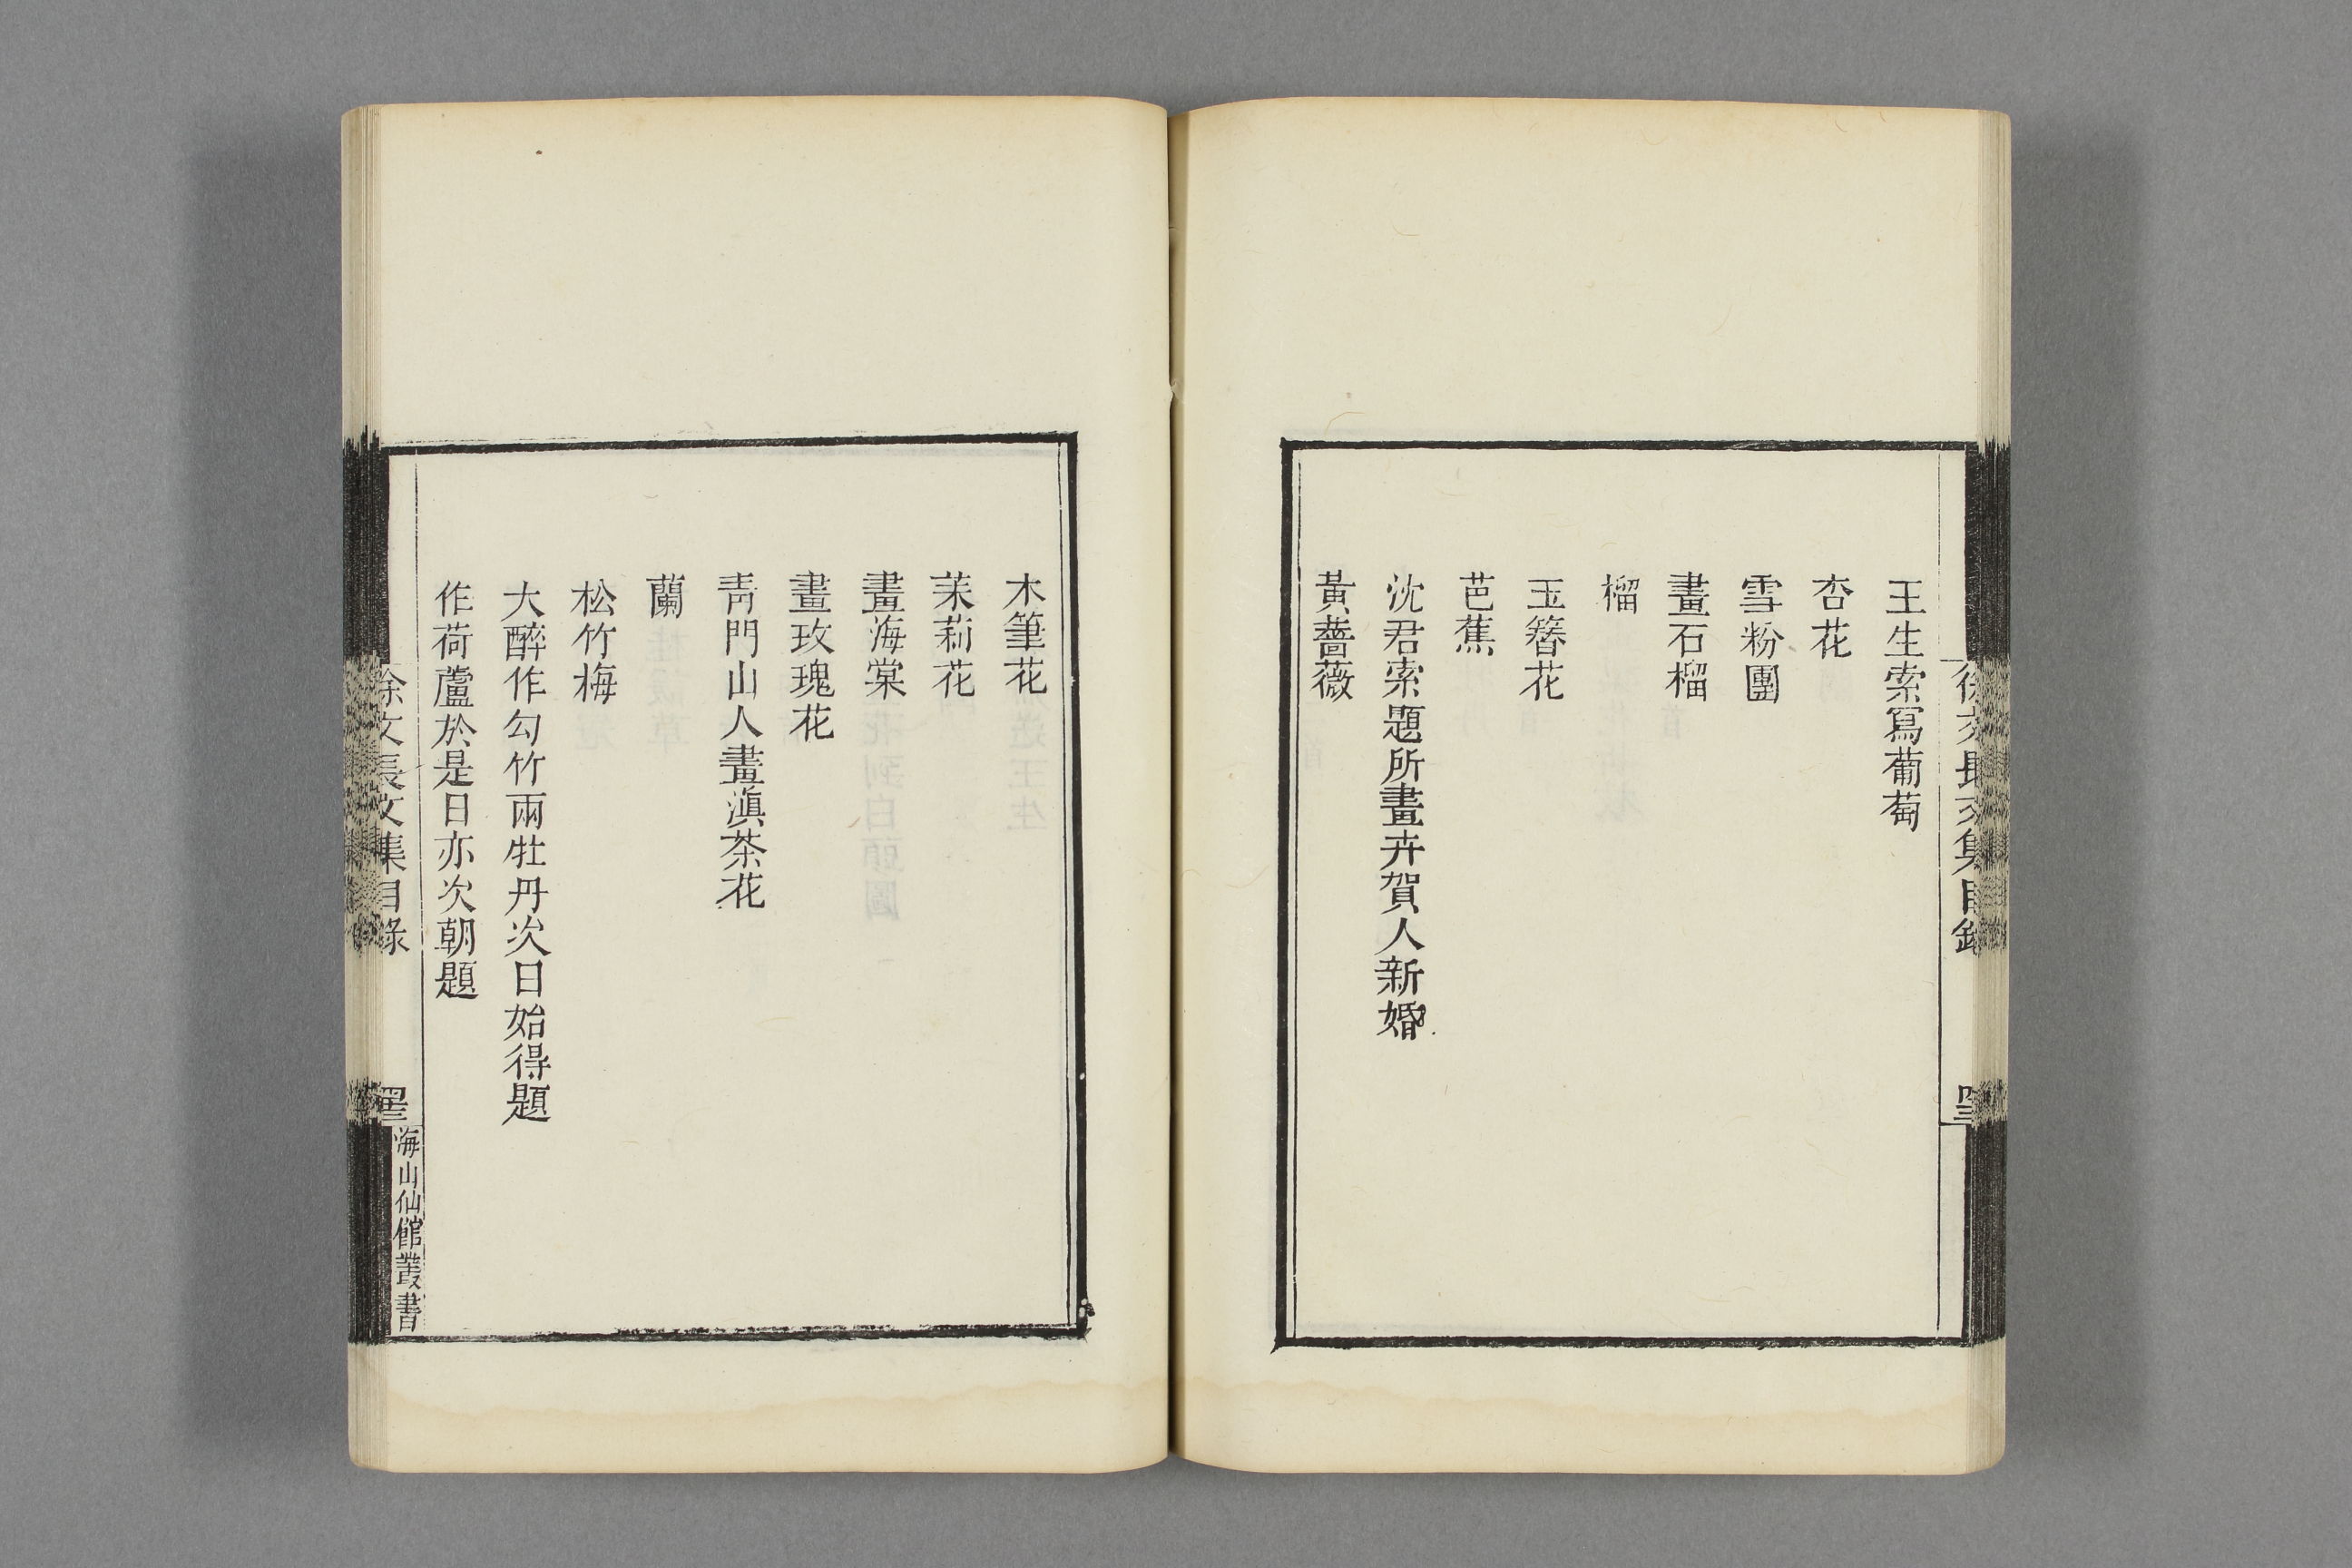 徐文長文集目錄
王生索寫葡萄
杏花
雪粉團
畫石榴
榴
玉簪花
芭蕉
沈君索題所畫卉賀人新婚
黃薔薇
木筆花
茉莉花
畫海棠
畫玫瑰花
青門山人畫滇茶花
蘭
松竹梅
大醉作勾竹兩牡丹次日始得題
作荷蘆於是日亦次朝題
徐文長文集目錄
海山仙館叢書